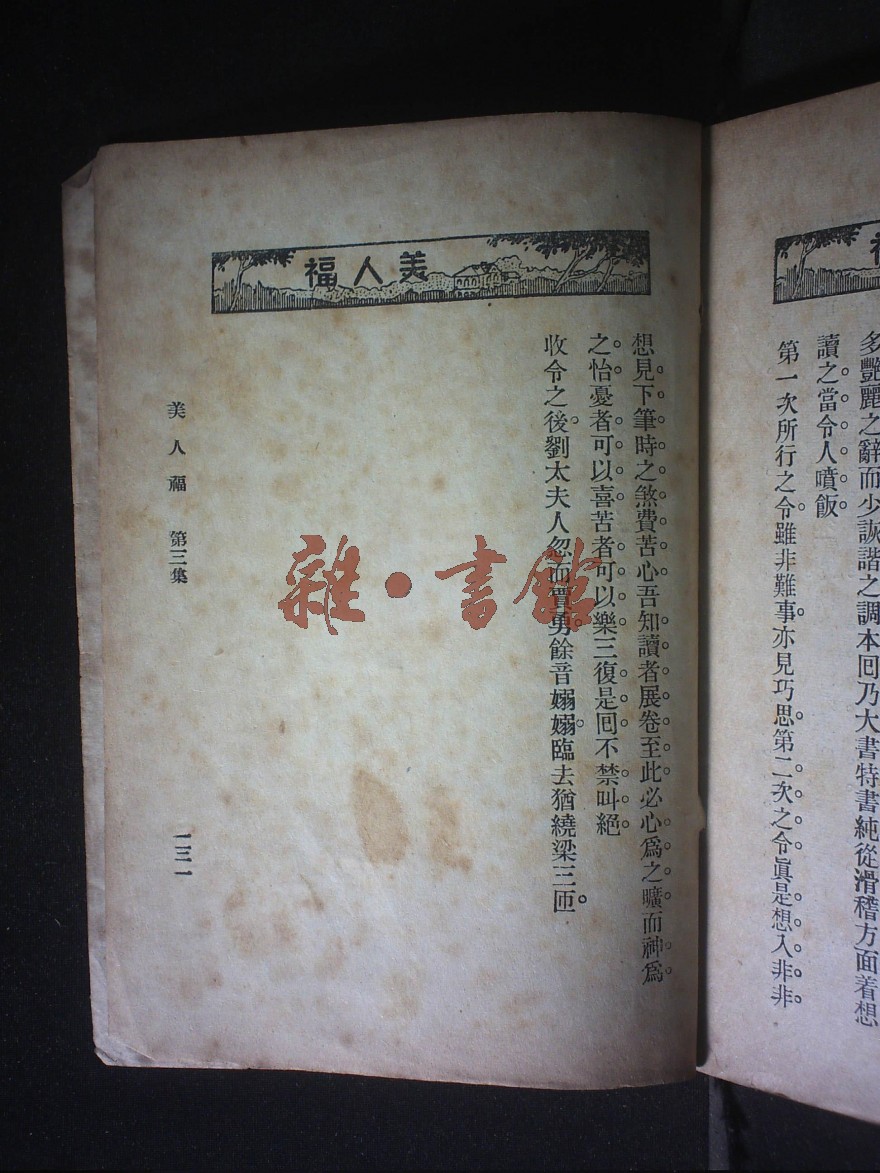 多艷麗之辭而少詼諧之調本囘乃大書特書純從滑稽方面着想
讀之當令人噴飯
第一次所行之令雖非難事亦見巧思第二次之令眞是想入非非
美人福
想見下筆時之煞費苦心吾知讀者展卷至此必心爲之曠而神爲
之怡憂者可以喜苦者可以樂三復是囘不禁叫絕
收令之後劉太夫人忽而賈勇餘音嫋嫋臨去猶繞梁三匝
美人福 第三集
一三一
雜·書館